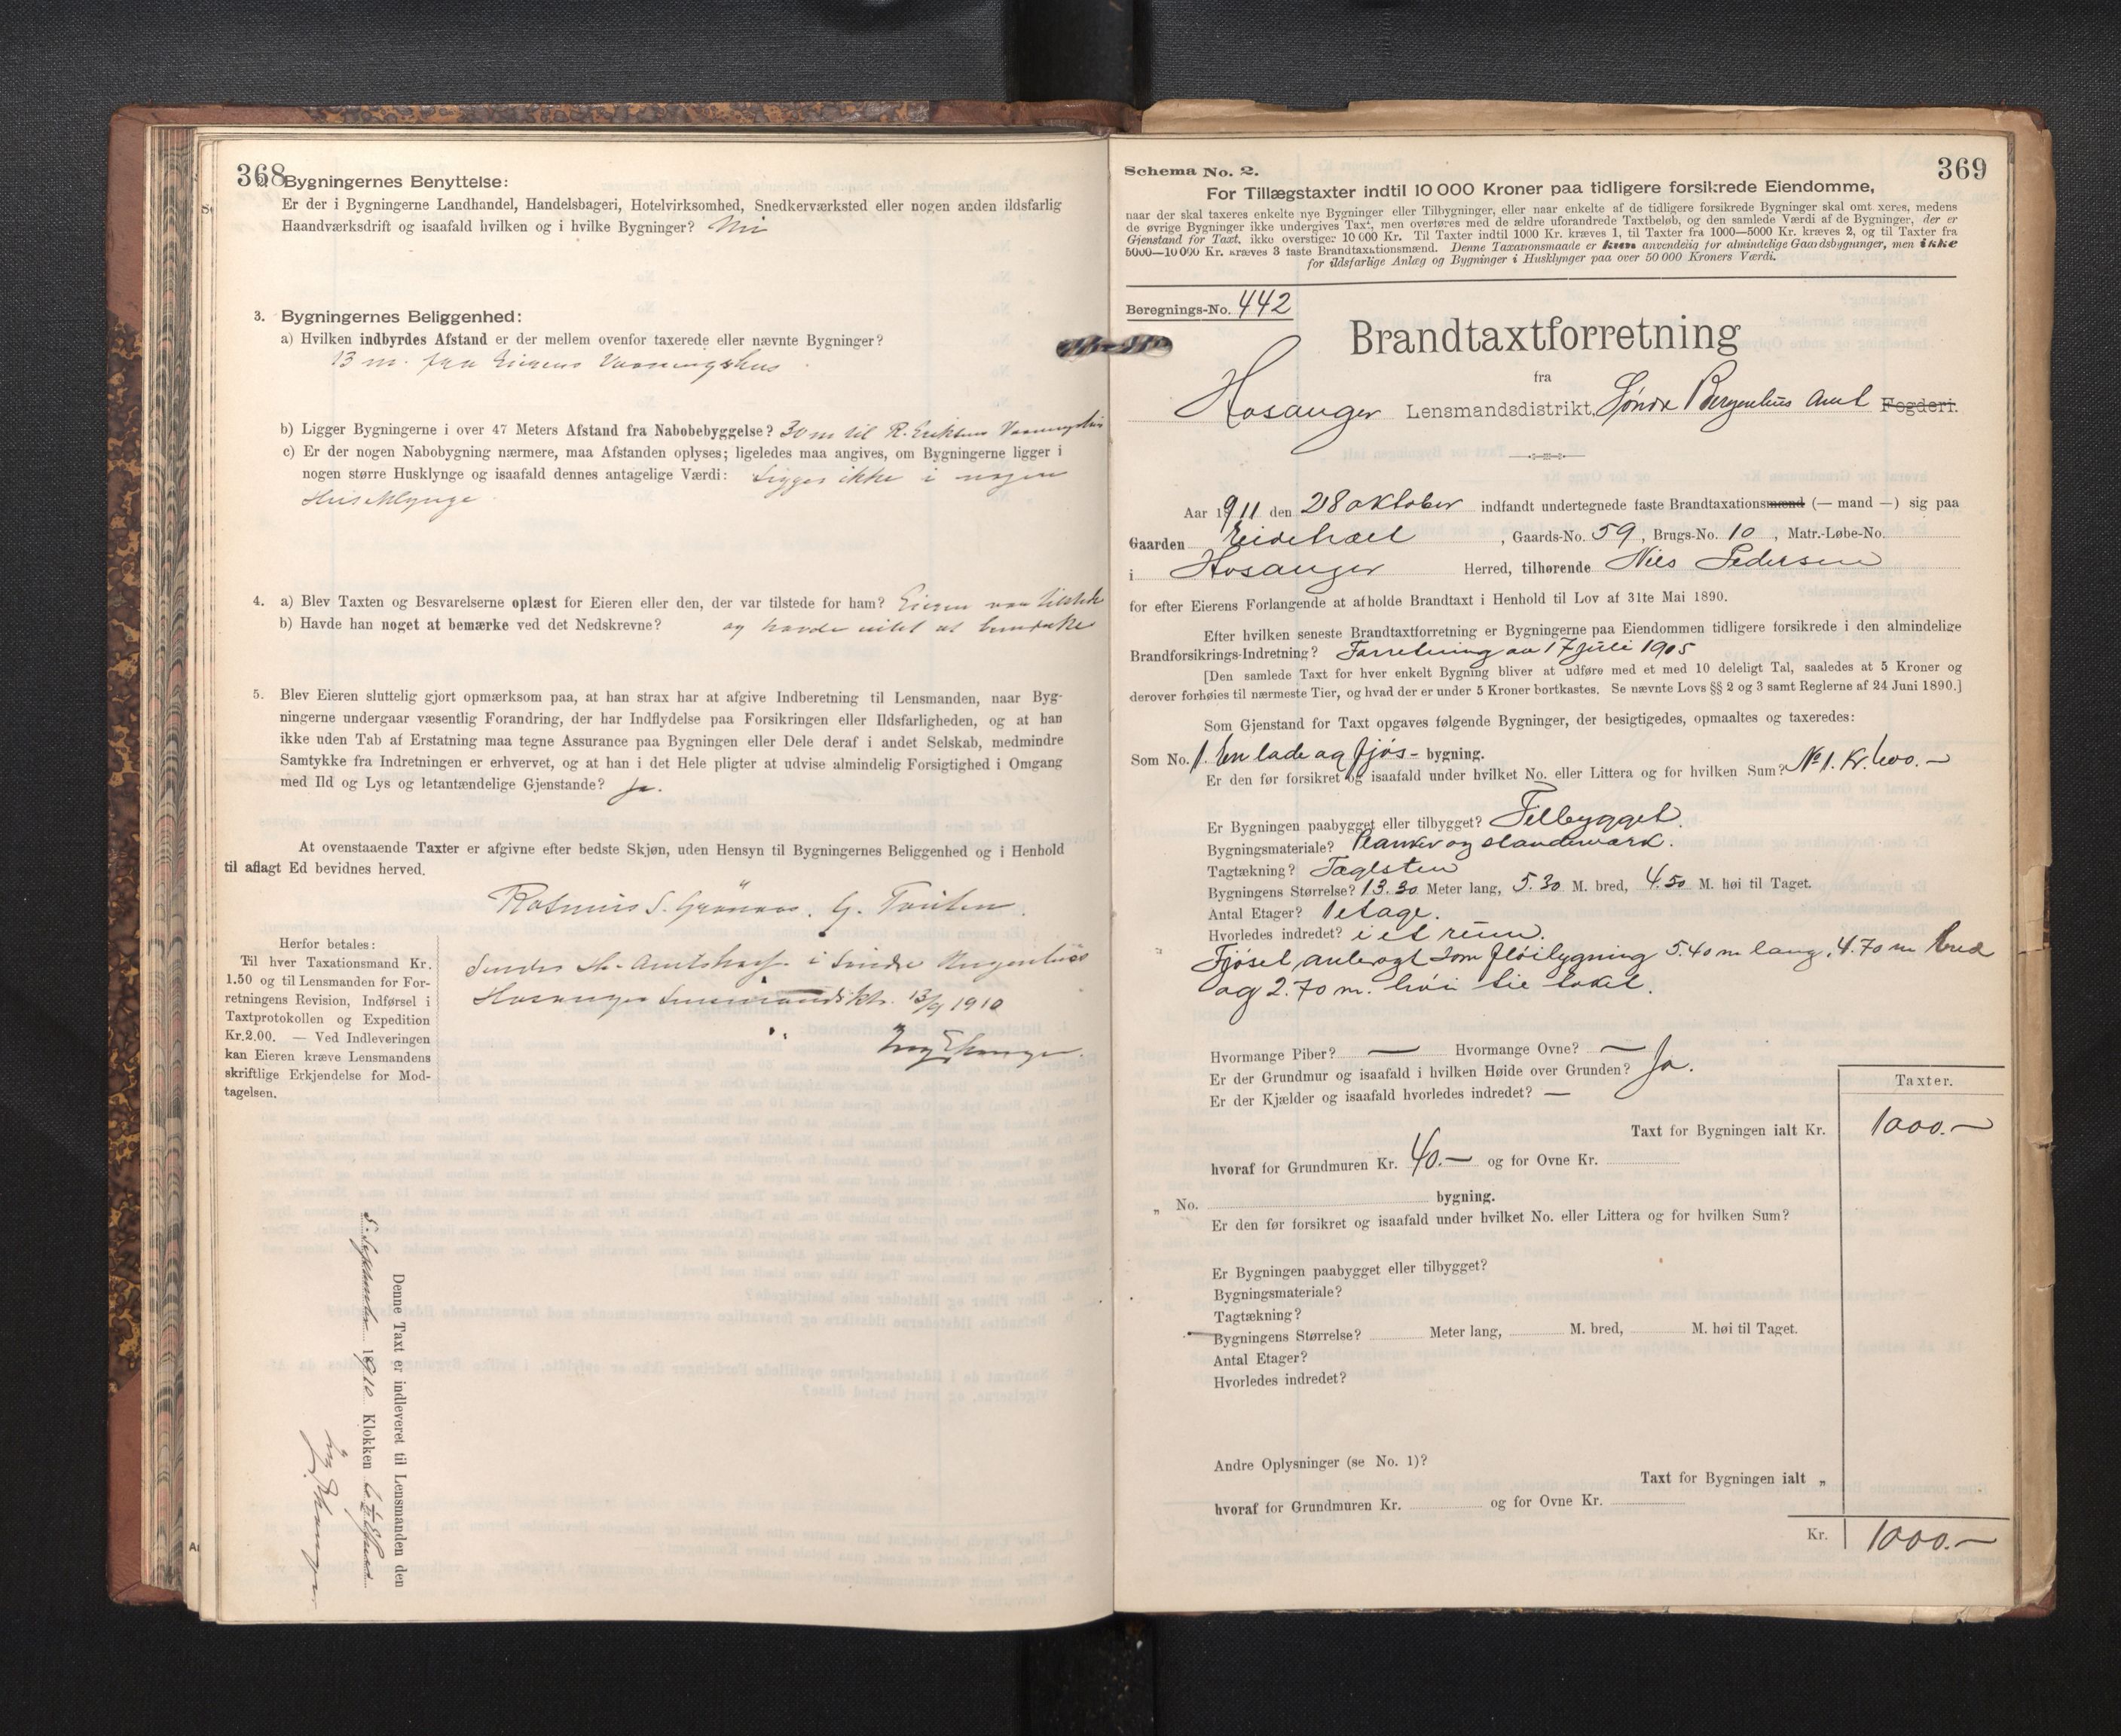 368
2. Bygningernes Benyttelse:
Er der i Bygningerne Landhandel, Handelsbageri, Hotelvirksomhed, Snedkerværksted eller nogen anden ildsfarlig
Haandværksdrift og isaafald hvilken og i hvilke Bygninger? Nei
3. Bygningernes Beliggenhed:
a) Hvilken indbyrdes Afstand er der mellem ovenfor taxerede eller nævnte Bygninger?
13 m. fra Eierens Vaaningshus
b) Ligger Bygningerne i over 47 Meters Afstand fra Nabobebyggelse? 30 m til R. Eriksens Vaaningshus
c) Er der nogen Nabobygning nærmere, maa Afstanden oplyses; ligeledes maa angives, om Bygningerne ligger i
nogen større Husklynge og isaafald dennes antagelige Værdi: Ligger ikke i nogen
Husklynge
4. a) Blev Taxten og Besvarelserne oplæst for Eieren eller den, der var tilstede for ham? Eieren var tilstede
b) Havde han noget at bemærke ved det Nedskrevne? og havde intet at bemærke
5. Blev Eieren sluttelig gjort opmærksom paa, at han strax har at afgive Indberetning til Lensmanden, naar Byg-
ningerne undergaar væsentlig Forandring, der har Indflydelse paa Forsikringen eller Ildsfarligheden, og at han
ikke uden Tab af Erstatning maa tegne Assurance paa Bygningen eller Dele deraf i andet Selskab, medmindre
Samtykke fra Indretningen er erhvervet, og at han i det Hele pligter at udvise almindelig Forsigtighed i Omgang
med Ild og Lys og letantændelige Gjenstande? Ja.
At ovenstaaende Taxter er afgivne efter bedste Skjøn, uden Hensyn til Bygningernes Beliggenhed og i Henhold
til aflagt Ed bevidnes herved.
Rasmus S.
Herfor betales:
Til hver Taxationsmand Kr.
1.50 og til Lensmanden for For-
retningens Revision, Indførsel i
Taxtprotokollen og Expedition
Kr. 2.00. — Ved Indleveringen
kan Eieren kræve Lensmandens
skriftlige Erkjendelse for Mod-
tagelsen.
Sendes Hr. Amtskass. i Søndre Bergenhus
Hosanger Lensmandsdikt. 13/9 1910
Denne Taxt er indleveret til Lensmanden den
5. September 1910 Klokken
369
Schema No. 2.
For Tillægstaxter indtil 10 000 Kroner paa tidligere forsikrede Eiendomme,
naar der skal taxeres enkelte nye Bygninger eller Tilbygninger, eller naar enkelte af de tidligere forsikrede Bygninger skal omtaxeres, medens
de øvrige Bygninger ikke undergives Taxt, men overføres med de ældre uforandrede Taxtbeløb, og den samlede Værdi af de Bygninger, der er
Gjenstand for Taxt, ikke overstiger 10 000 Kr. Til Taxter indtil 1000 Kr. kræves 1, til Taxter fra 1000—5000 Kr. kræves 2, og til Taxter fra
5000—10 000 Kr. kræves 3 faste Brandtaxationsmænd. Denne Taxationsmaade er kun anvendelig for almindelige Gaardsbygninger, men ikke
for ildsfarlige Anlæg og Bygninger i Husklynger paa over 50 000 Kroners Værdi.
Beregnings-No. 442
Brandtaxtforretning
fra
Hosanger Lensmandsdistrikt, Søndre Bergenhus Amt Fogderi.
Aar 1911 den 28 oktober indfandt undertegnede faste Brandtaxationsmænd (— mand —) sig paa
Gaarden Eidetræet, Gaards-No. 59, Brugs-No. 10, Matr.-Løbe-No.
i Hosanger Herred, tilhørende Nils Pedersen
for efter Eierens Forlangende at afholde Brandtaxt i Henhold til Lov af 31te Mai 1890.
Efter hvilken seneste Brandtaxtforretning er Bygningerne paa Eiendommen tidligere forsikrede i den almindelige
Brandforsikrings-Indretning? Forretning av 17 juli 1905
[Den samlede Taxt for hver enkelt Bygning bliver at udføre med et med 10 deleligt Tal, saaledes at 5 Kroner og
derover forhøies til nærmeste Tier, og hvad der er under 5 Kroner bortkastes. Se nævnte Lovs §§ 2 og 3 samt Reglerne af 24 Juni 1890.]
Som Gjenstand for Taxt opgaves følgende Bygninger, der besigtigedes, opmaaltes og taxeredes:
Som No. 1. En lade og fjøs- bygning.
Er den før forsikret og isaafald under hvilket No. eller Littera og for hvilken Sum? No 1. Kr. 600.—
Er Bygningen paabygget eller tilbygget? Tilbygget.
Bygningsmateriale? Planker og standerværk.
Tagtækning? Taglsten
Bygningens Størrelse? 13.30 Meter lang, 5.30 M. bred, 4.50 M. høi til Taget.
Antal Etager? 1 etage.
Hvorledes indredet? i et rum.
Fjøset anbragt som fløibygning 5.40 m lang, 4.70 m bred
og 2.70 m. høi til taket.
Hvormange Piber? — Hvormange Ovne? —
Er der Grundmur og isaafald i hvilken Høide over Grunden? Ja.
Er der Kjælder og isaafald hvorledes indredet? —
Taxter.
Taxt for Bygningen ialt Kr. 1000.—
hvoraf for Grundmuren Kr. 40.— og for Ovne Kr.
„ No. bygning.
Er den før forsikret og isaafald under hvilket No. eller Littera og for hvilken Sum?
Er Bygningen paabygget eller tilbygget?
Bygningsmateriale?
Tagtækning?
Bygningens Størrelse? Meter lang, M. bred, M. høi til Taget.
Antal Etager?
Hvorledes indredet?
Andre Oplysninger (se No. 1)?
Taxt for Bygningen ialt „
hvoraf for Grundmuren Kr. og for Ovne Kr.
Kr. 1000.—